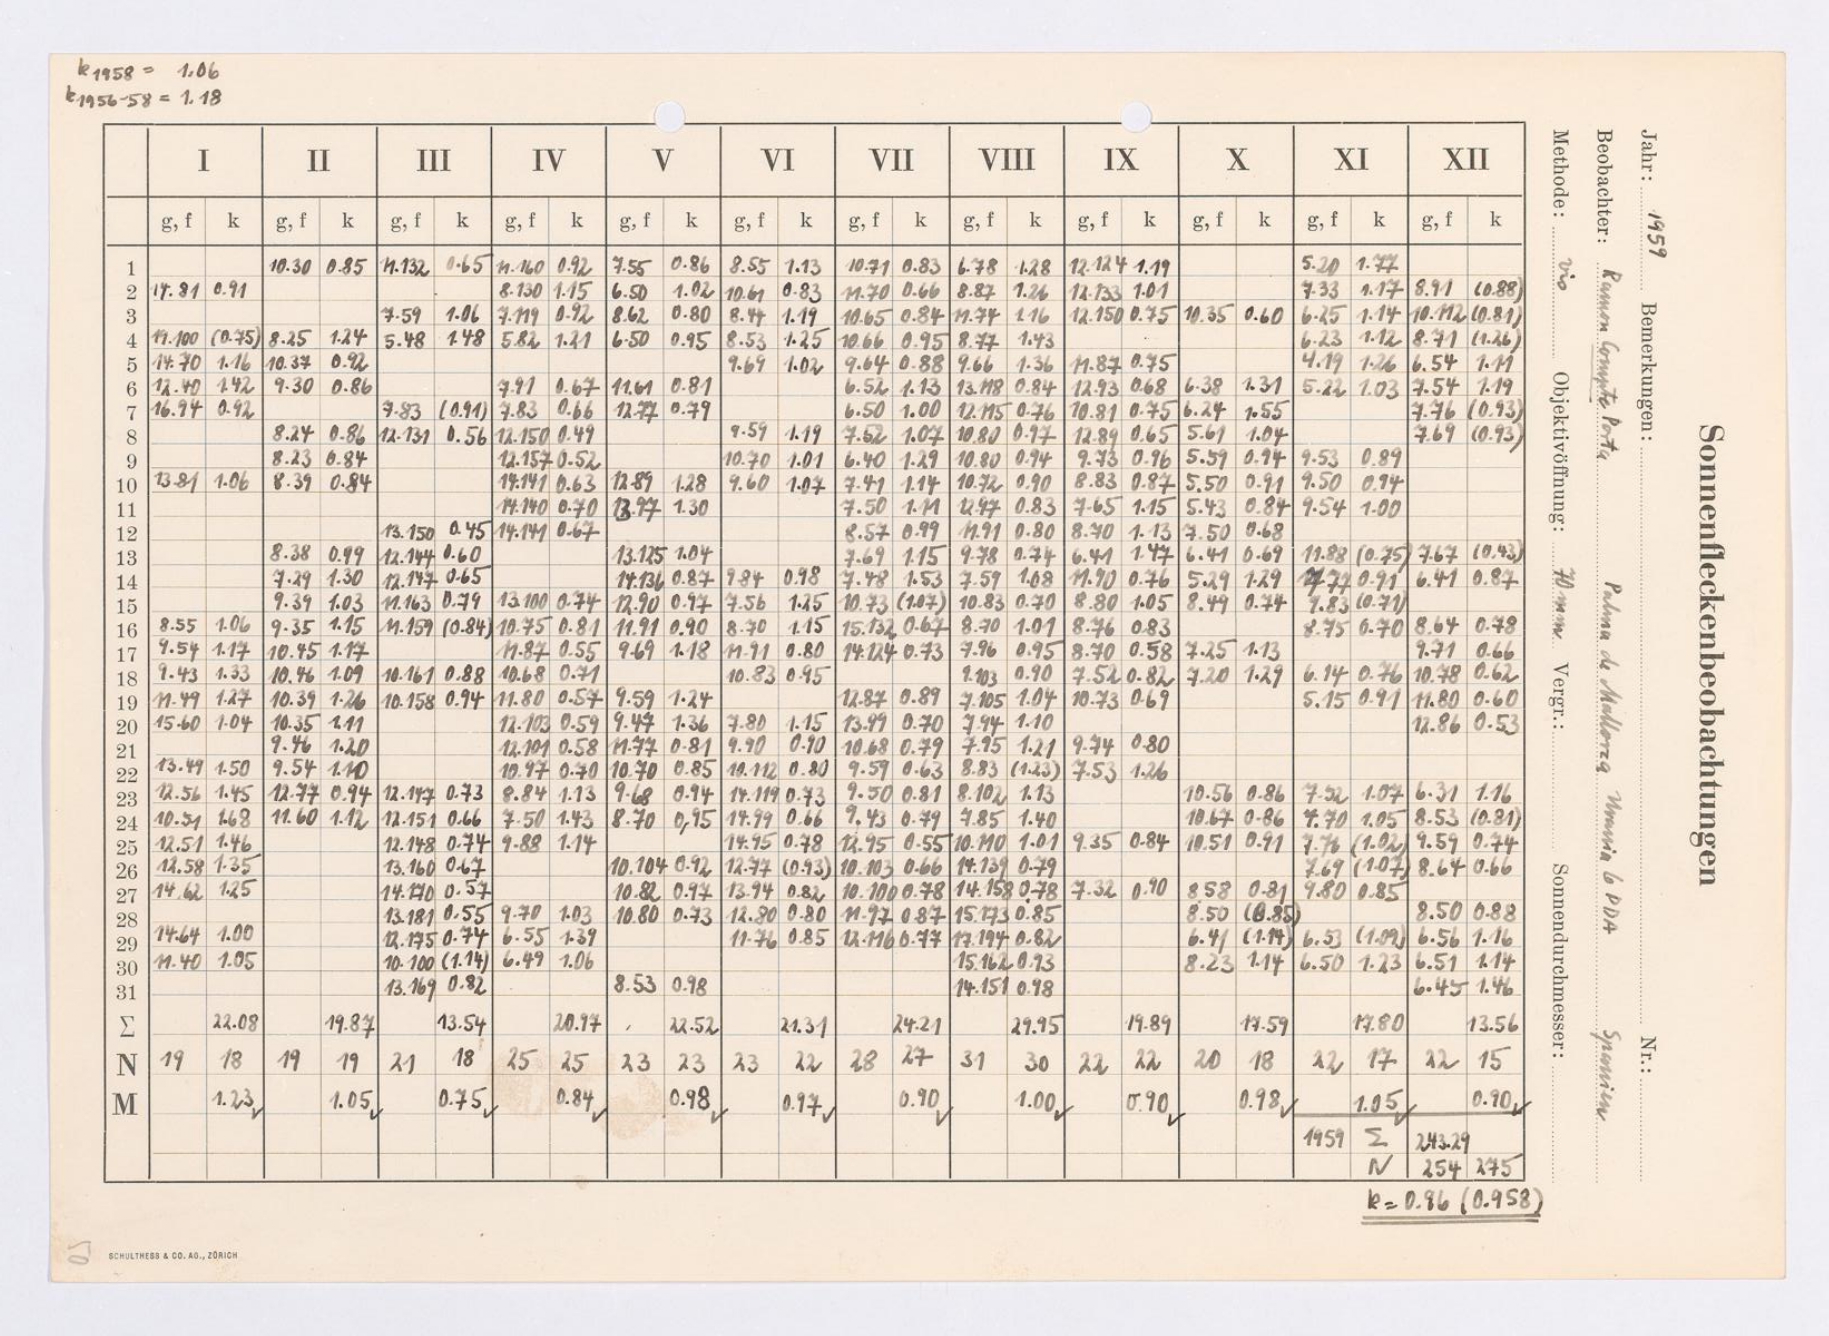 k1958 = 1.06
k1956-58 = 1.18
Sonnenfleckenbeobachtungen
Jahr: 1959 Bemerkungen: Nr.:
Beobachter: Ramon Compte Porta Palma de Mallorca Spanien
Methode: vis Objektivöffnung: 70 mm Vergr.: Sonnendurchmesser:
I II III IV V VI VII VIII IX X XI XII
g, f k g, f k g, f k g, f k g, f k g, f k g, f k g, f k g, f k g, f k g, f k g, f k
1 10.30 0.85 11.132 0.65 11.160 0.92 7.55 0.86 8.55 1.13 10.71 0.83 6.78 1.28 12.124 1.19 5.20 1.77
2 14.81 0.91 8.130 1.15 6.50 1.02 10.61 0.83 11.70 0.66 8.87 1.26 12.133 1.01 7.33 1.17 8.91 (0.88)
3 7.59 1.06 7.119 0.92 8.62 0.80 8.44 1.19 10.65 0.84 11.74 1.16 12.150 0.75 10.35 0.60 6.25 1.14 10.112 (0.81)
4 11.100 (0.75) 8.25 1.24 5.48 1.48 5.82 1.21 6.50 0.95 8.53 1.25 10.66 0.95 8.77 1.43 6.23 1.12 8.71 (1.26)
5 14.70 1.16 10.37 0.92 9.69 1.02 9.64 0.88 9.66 1.36 11.87 0.75 4.19 1.26 6.54 1.11
6 12.40 1.42 9.30 0.86 7.91 0.67 11.61 0.81 6.52 1.13 13.118 0.84 12.93 0.68 6.38 1.31 5.22 1.03 7.54 1.19
7 16.94 0.92 7.83 (0.91) 7.83 0.66 12.77 0.79 6.50 1.00 12.115 0.76 10.81 0.75 6.24 1.55 7.76 (0.93)
8 8.24 0.86 12.131 0.56 12.150 0.49 9.59 1.19 7.52 1.07 10.80 0.97 12.89 0.65 5.61 1.04 7.69 (0.93)
9 8.23 0.84 12.157 0.52 10.70 1.01 6.40 1.29 10.80 0.94 9.73 0.96 5.59 0.94 9.53 0.89
10 13.81 1.06 8.39 0.84 14.141 0.63 12.89 1.28 9.60 1.07 7.41 1.14 10.72 0.90 8.83 0.87 5.50 0.91 9.50 0.94
11 14.140 0.70 13.97 1.30 7.50 1.11 12.97 0.83 7.65 1.15 5.43 0.84 9.54 1.00
12 13.150 0.45 14.141 0.67 8.57 0.99 11.91 0.80 8.70 1.13 7.50 0.68
13 8.38 0.99 12.144 0.60 13.125 1.04 7.69 1.15 9.78 0.74 6.41 1.47 6.41 0.69 11.88 (0.75) 7.67 (0.43)
14 7.29 1.30 12.147 0.65 14.136 0.87 9.84 0.98 7.48 1.53 7.59 1.08 11.90 0.76 5.29 1.29 7.77 0.91 6.41 0.87
15 9.39 1.03 11.163 0.79 13.100 0.74 12.90 0.97 7.56 1.25 10.73 (1.07) 10.83 0.70 8.80 1.05 8.49 0.74 9.83 (0.71)
16 8.55 1.06 9.35 1.15 11.159 (0.84) 10.75 0.81 11.91 0.90 8.70 1.15 15.132 0.67 8.70 1.01 8.76 0.83 8.75 0.70 8.64 0.78
17 9.54 1.17 10.45 1.17 11.87 0.55 9.69 1.18 11.91 0.80 14.124 0.73 7.96 0.95 8.70 0.58 7.25 1.13 9.71 0.66
18 9.43 1.33 10.46 1.09 10.161 0.88 10.68 0.71 10.83 0.95 9.103 0.90 7.52 0.82 7.20 1.29 6.14 0.76 10.78 0.62
19 11.49 1.27 10.39 1.26 10.158 0.94 11.80 0.57 9.59 1.24 12.87 0.89 7.105 1.04 10.73 0.69 5.15 0.91 11.80 0.60
20 15.60 1.04 10.35 1.11 12.103 0.59 9.47 1.36 7.80 1.15 13.99 0.70 7.94 1.10 12.86 0.53
21 9.46 1.20 12.101 0.58 11.77 0.81 9.90 0.90 10.68 0.79 7.95 1.21 9.74 0.80
22 13.49 1.50 9.54 1.10 10.97 0.70 10.70 0.85 10.112 0.80 9.59 0.63 8.83 (1.23) 7.53 1.26
23 12.56 1.45 12.77 0.94 12.147 0.73 8.84 1.13 9.68 0.94 14.119 0.73 9.50 0.81 8.102 1.13 10.56 0.86 7.52 1.07 6.31 1.16
24 10.51 1.68 11.60 1.12 12.151 0.66 7.50 1.43 8.70 0,95 14.99 0.66 9.43 0.79 7.85 1.40 10.67 0.86 7.70 1.05 8.53 (0.81)
25 12.51 1.46 12.148 0.74 9.88 1.14 14.95 0.78 12.95 0.55 10.110 1.01 9.35 0.84 10.51 0.91 7.76 (1.02) 9.59 0.74
26 12.58 1.35 13.160 0.67 10.104 0.92 12.77 (0.93) 10.103 0.66 14.139 0.79 7.69 (1.07) 8.64 0.66
27 14.62 1.25 14.170 0.57 10.82 0.97 13.94 0.82 10.100 0.78 14.158 0.78 7.32 0.90 8.58 0.81 9.80 0.85
28 13.181 0.55 9.70 1.03 10.80 0.73 12.80 0.80 11.97 0.87 15.173 0.85 8.50 (0.85) 8.50 0.88
29 14.64 1.00 12.175 0.74 6.55 1.39 11.76 0.85 12.116 0.77 17.194 0.82 6.41 (1.14) 6.53 (1.09) 6.56 1.16
30 11.40 1.05 10.100 (1.14) 6.49 1.06 15.162 0.93 8.23 1.14 6.50 1.23 6.51 1.14
31 13.169 0.82 8.53 0.98 14.151 0.98 6.45 1.46
Σ 22.08 19.87 13.54 20.97 22.52 21.31 24.21 29.95 19.89 17.59 17.80 13.56
N 19 18 19 19 21 18 25 25 23 23 23 22 28 27 31 30 22 22 20 18 22 17 22 15
M 1.23✓ 1.05✓ 0.75✓ 0.84✓ 0.98✓ 0.97✓ 0.90✓ 1.00✓ 0.90✓ 0.98✓ 1.05✓ 0.90✓
1959 Σ 243.29
N 254 275
k = 0.96 (0.958)
SCHULTHESS & CO. AG., ZÜRICH